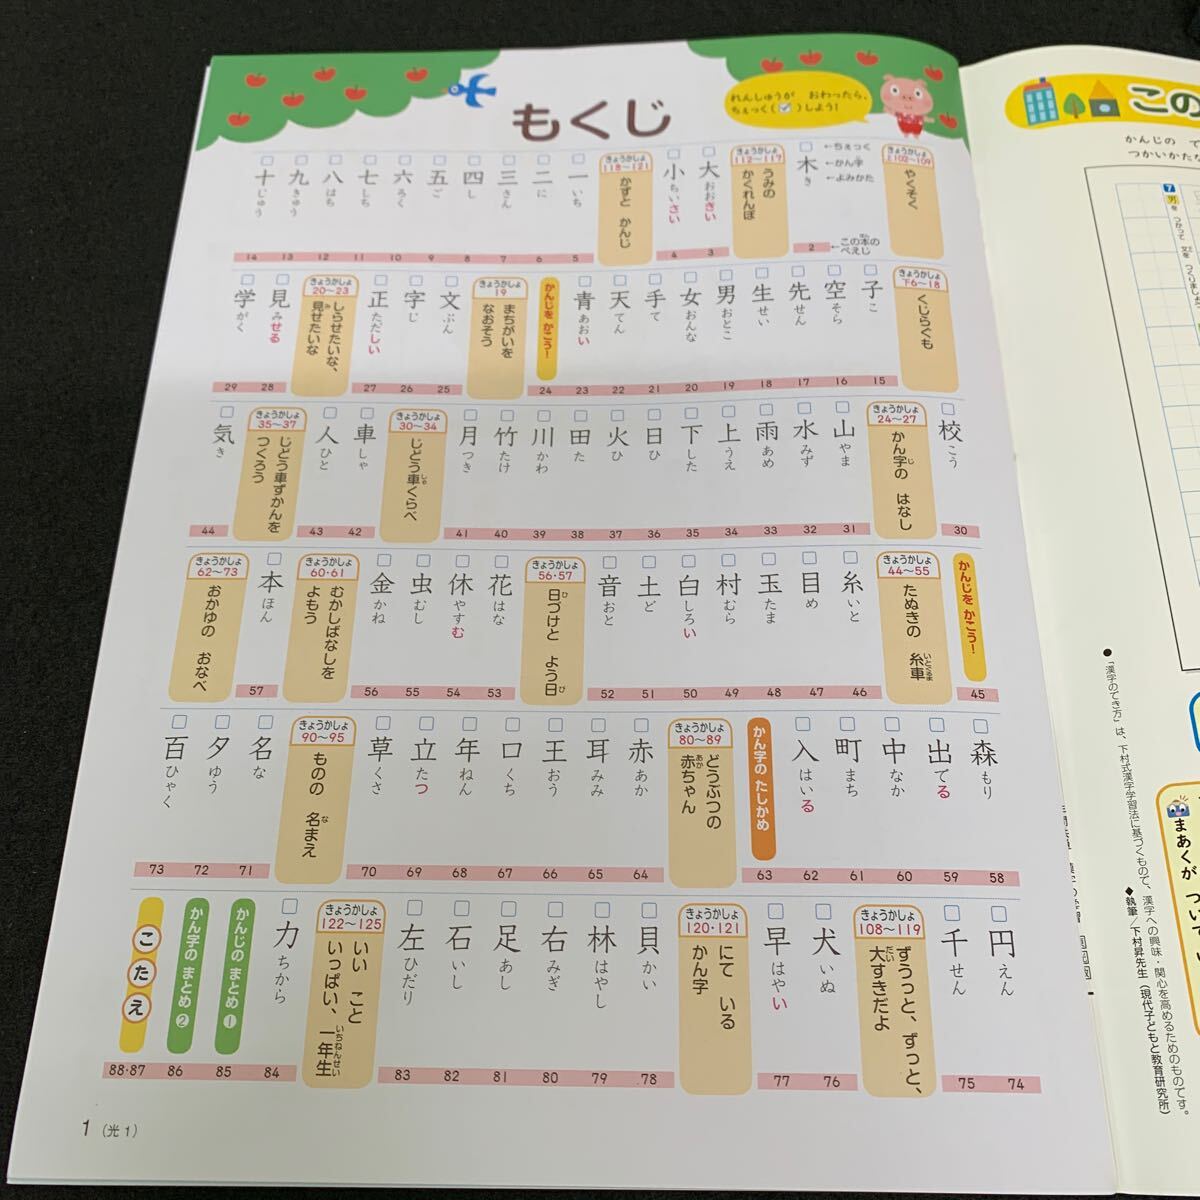 もくじ
れんしゅうが おわったら、
ちぇっく(☑)しよう!
きょうかしょ
上102〜109
やくそく
←ちぇっく
←かん字
←よみかた
木 き
2
←この本のぺえじ
きょうかしょ
112〜117
うみの
かくれんぼ
大 おおきい
3
小 ちいさい
4
きょうかしょ
118〜121
かずと かんじ
一 いち
5
二 に
6
三 さん
7
四 し
8
五 ご
9
六 ろく
10
七 しち
11
八 はち
12
九 きゅう
13
十 じゅう
14
きょうかしょ
下6〜18
くじらぐも
子 こ
15
空 そら
16
先 せん
17
生 せい
18
男 おとこ
19
女 おんな
20
手 て
21
天 てん
22
青 あおい
23
かんじを かこう!
24
きょうかしょ
19
まちがいを
なおそう
文 ぶん
25
字 じ
26
正 ただしい
27
きょうかしょ
20〜23
しらせたいな、
見せたいな
見 みせる
28
学 がく
29
校 こう
30
きょうかしょ
24〜27
かん字の はなし
山 やま
31
水 みず
32
雨 あめ
33
上 うえ
34
下 した
35
日 ひ
36
火 ひ
37
田 た
38
川 かわ
39
竹 たけ
40
月 つき
41
きょうかしょ
30〜34
じどう車くらべ
車 しゃ
42
人 ひと
43
きょうかしょ
35〜37
じどう車ずかんを
つくろう
気 き
44
かんじを かこう!
45
きょうかしょ
44〜55
たぬきの 糸車
糸 いと
46
目 め
47
玉 たま
48
村 むら
49
白 しろい
50
土 ど
51
音 おと
52
きょうかしょ
56・57
日づけと よう日
花 はな
53
休 やすむ
54
虫 むし
55
金 かね
56
きょうかしょ
60・61
むかしばなしを
よもう
本 ほん
57
きょうかしょ
62〜73
おかゆの おなべ
森 もり
58
出 でる
59
中 なか
60
町 まち
61
入 はいる
62
かん字の たしかめ
63
きょうかしょ
80〜89
どうぶつの
赤ちゃん
赤 あか
64
耳 みみ
65
王 おう
66
口 くち
67
年 ねん
68
立 たつ
69
草 くさ
70
きょうかしょ
90〜95
ものの 名まえ
名 な
71
夕 ゆう
72
百 ひゃく
73
円 えん
74
千 せん
75
きょうかしょ
108〜119
ずうっと、ずっと、
大すきだよ
犬 いぬ
76
早 はやい
77
きょうかしょ
120・121
にて いる
かん字
貝 かい
78
林 はやし
79
右 みぎ
80
足 あし
81
石 いし
82
左 ひだり
83
きょうかしょ
122〜125
いい こと
いっぱい、一年生
力 ちから
84
かんじの まとめ❶
85
かん字の まとめ❷
86
こたえ
88・87
1 (光1)
この
かんじの て
つかいかたな
7 男を つかって 文を つくりましょ
●「漢字のでき方」は、下村式漢字学習法に基づくもので、漢字への興味・関心を高めるためのものです。
◆執筆/下村昇先生(現代子どもと教育研究所)
まあくが ついて